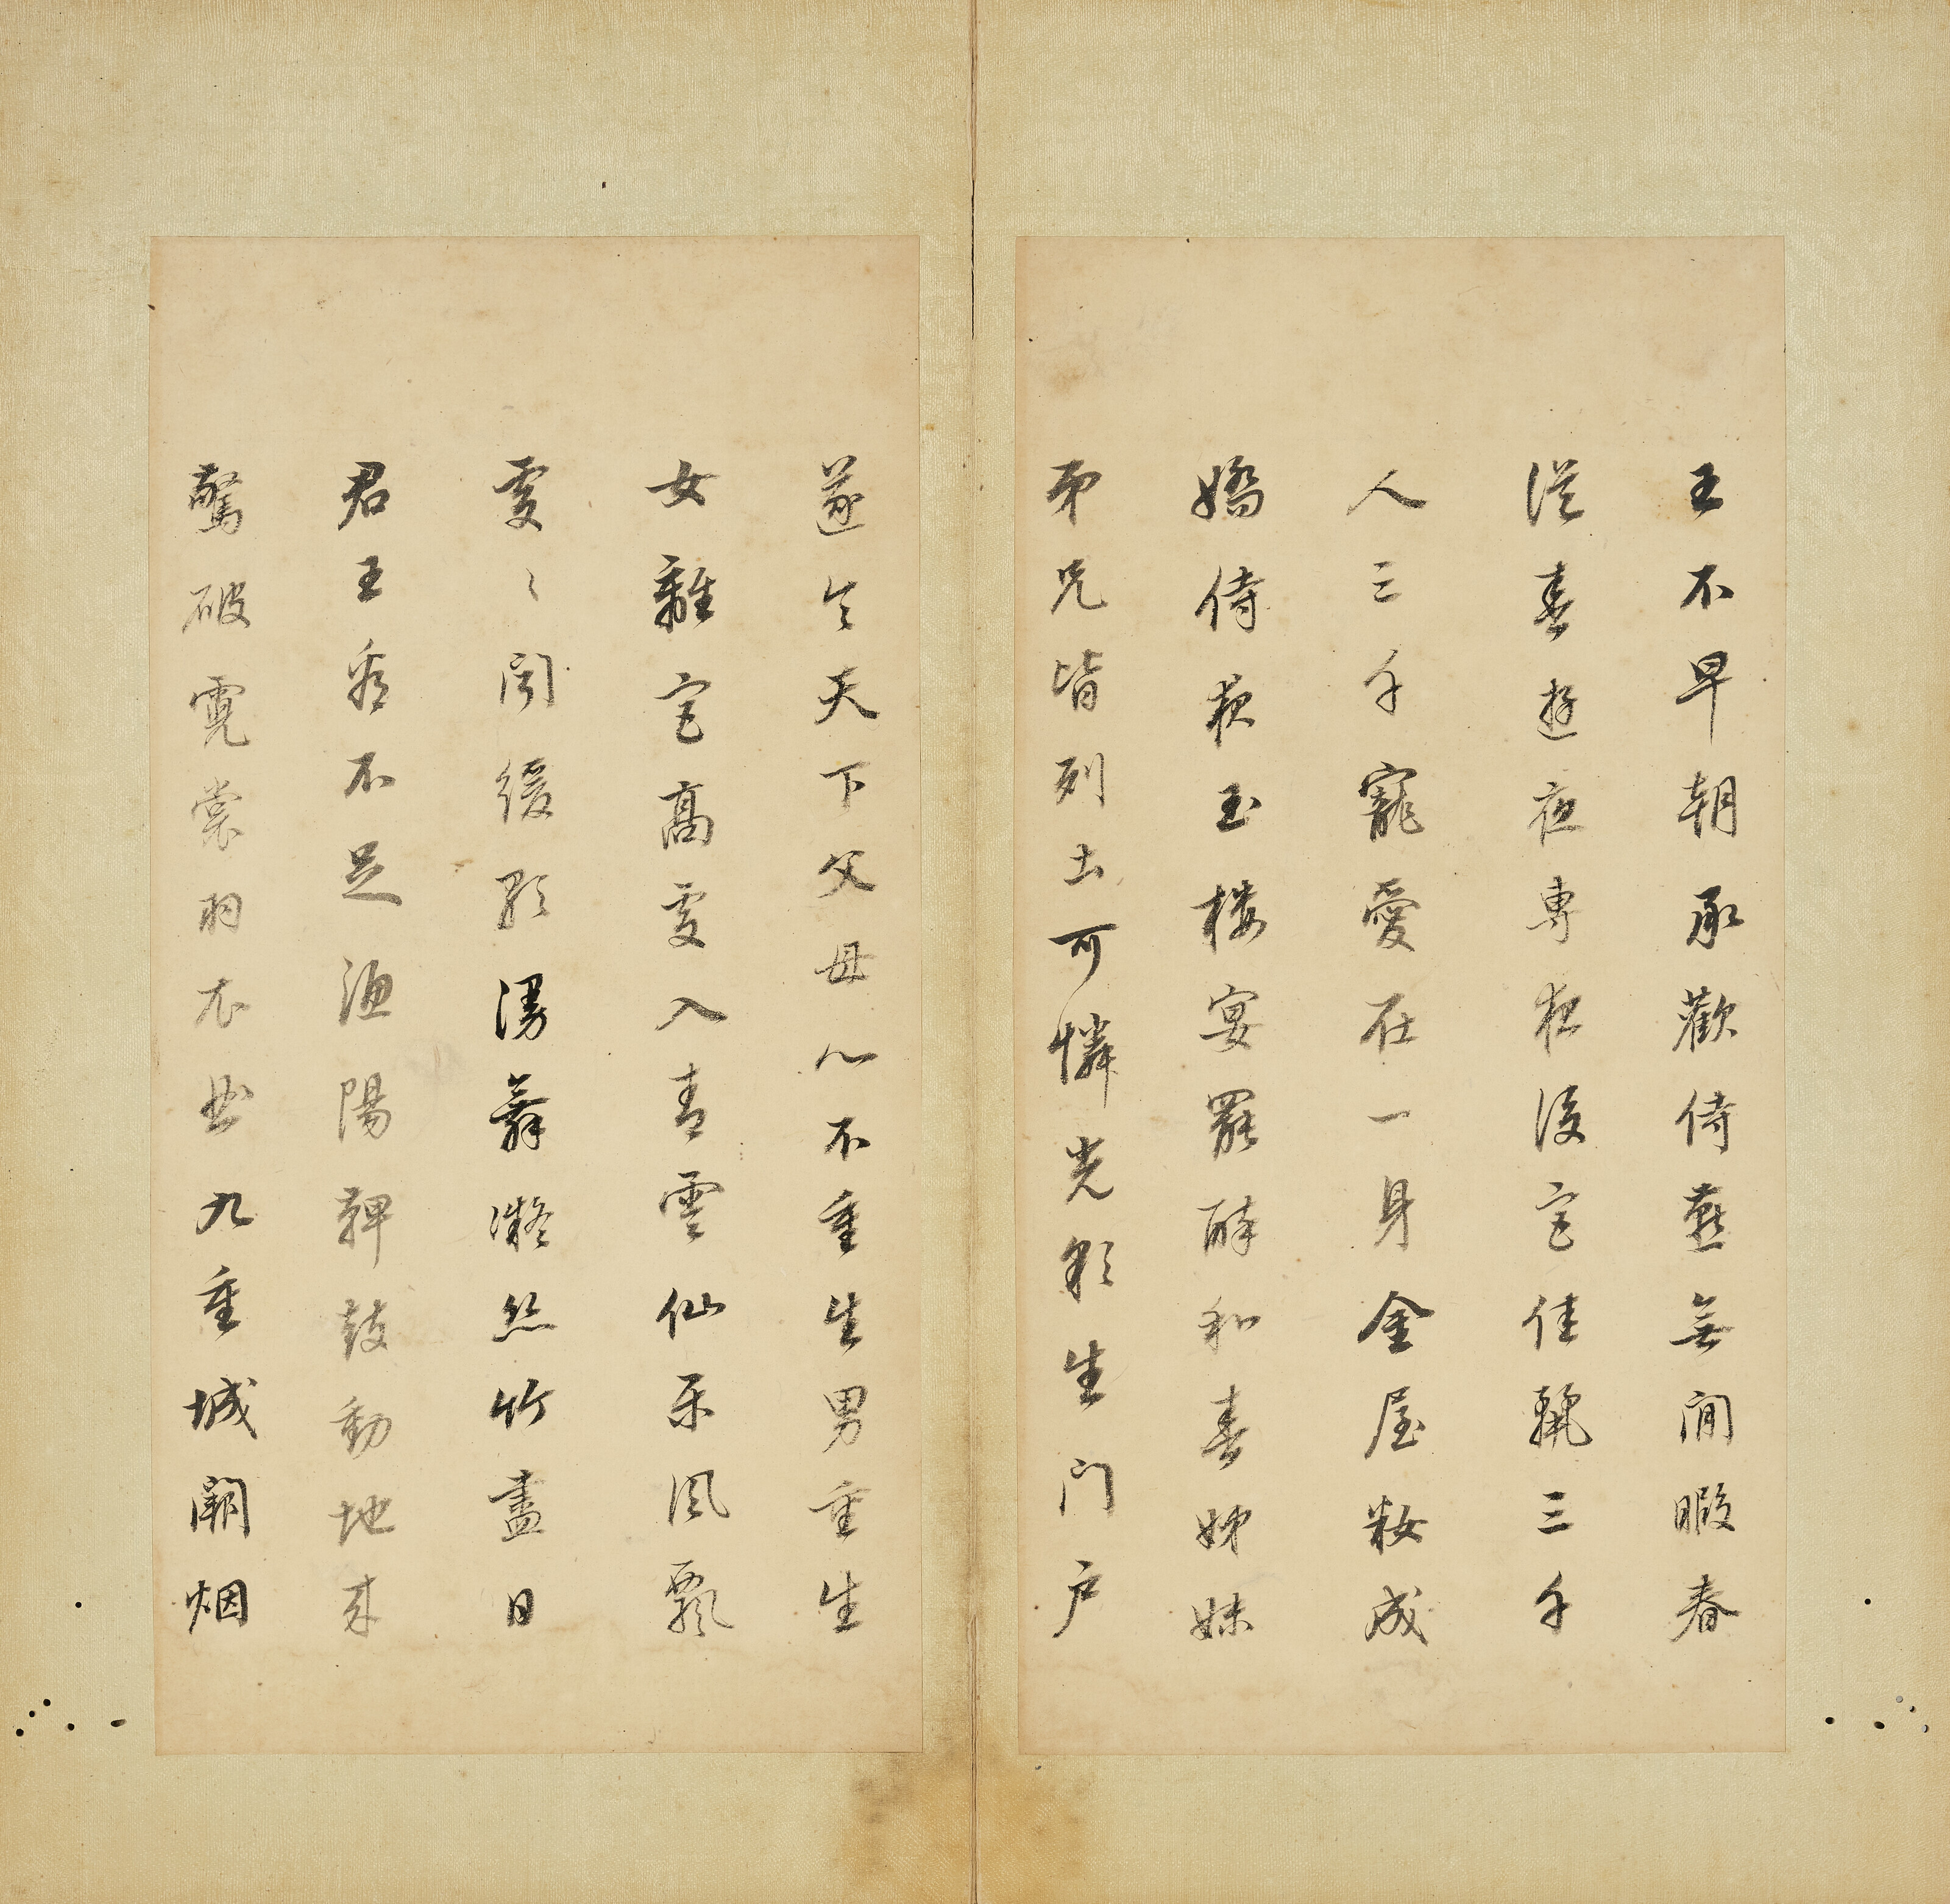 王不早朝承歡侍燕無閒暇春
從春遊夜專夜後宮佳麗三千
人三千寵愛在一身金屋妝成
嬌侍夜玉樓宴罷醉和春姊妹
弟兄皆列土可憐光彩生門戶
遂令天下父母心不重生男重生
女離宮高處入青雲仙樂風飄
處〻聞緩歌漫舞凝絲竹盡日
君王看不足漁陽鞞鼓動地來
驚破霓裳羽衣曲九重城闕烟